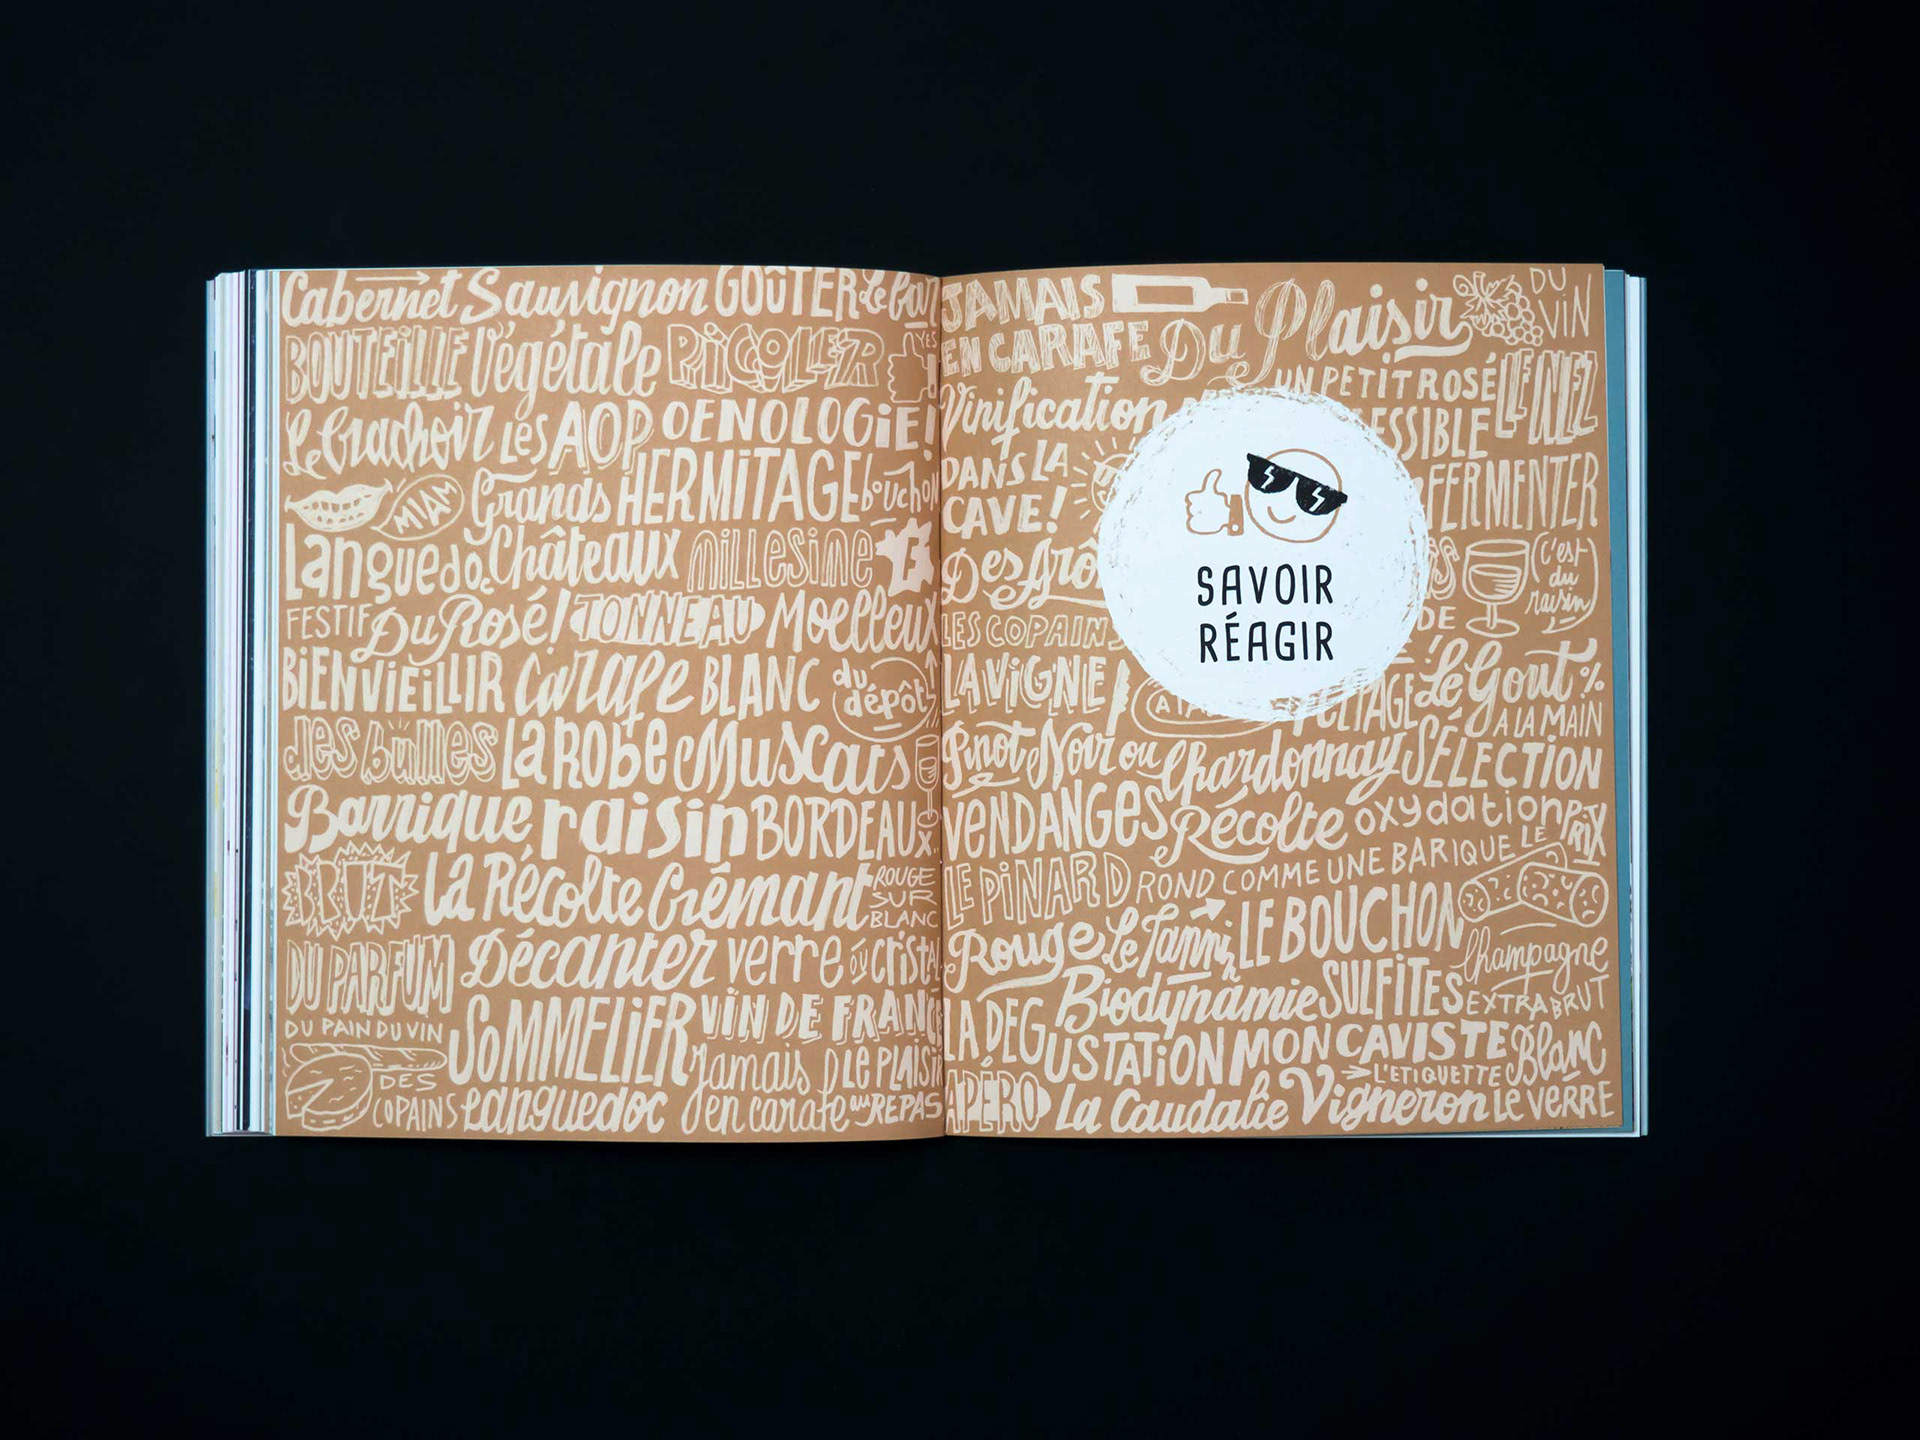 Cabernet Sauvignon GOÛTER
BOUTEILLE Végétale PICOLER YES
Le Crachoir LES AOP OENOLOGIE!
MIAM Grands HERMITAGE bouchon
Languedoc Châteaux millesime
FESTIF Du Rosé! TONNEAU Moelleux
BIENVIEILLIR Carafe BLANC du dépôt
des bulles LA ROBE Muscats
Barrique raisin BORDEAUX
BRUT La Récolte Crémant ROUGE SUR BLANC
DU PARFUM Décanter verre où cristal
DU PAIN DU VIN SOMMELIER VIN DE FRANCE
DES COPAINS Languedoc jamais en carafe LE PLAISIR au REPAS
JAMAIS EN CARAFE Du Plaisir DU VIN
Vinification UN PETIT ROSÉ LE NEZ
ESSIBLE
DANS LA CAVE! FERMENTER
Des Arô (c'est du raisin)
LES COPAINS DE
SAVOIR
RÉAGIR
LA VIGNE Le Gout %
A LA MAIN
Pinot Noir ou Chardonnay SÉLECTION
VENDANGES Récolte oxydation LE PRIX
LE PINARD ROND COMME UNE BARIQUE
Rouge Le Tannin LE BOUCHON
Biodynamie SULFITES Champagne EXTRA BRUT
LA DEGUSTATION MON CAVISTE Blanc
L'ETIQUETTE
APÉRO La Caudalie Vigneron LE VERRE